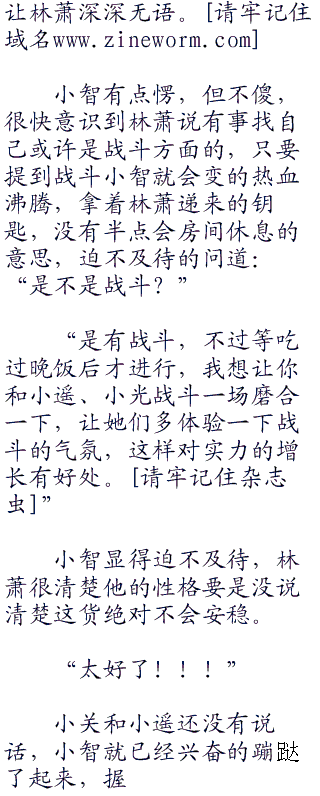 让林萧深深无语。[请牢记住
域名www.zineworm.com]
小智有点愣，但不傻，
很快意识到林萧说有事找自
己或许是战斗方面的，只要
提到战斗小智就会变的热血
沸腾，拿着林萧递来的钥
匙，没有半点会房间休息的
意思，迫不及待的问道：
“是不是战斗？”
“是有战斗，不过等吃
过晚饭后才进行，我想让你
和小遥、小光战斗一场磨合
一下，让她们多体验一下战
斗的气氛，这样对实力的增
长有好处。[请牢记住杂志
虫]”
小智显得迫不及待，林
萧很清楚他的性格要是没说
清楚这货绝对不会安稳。
“太好了！！！”
小关和小遥还没有说
话，小智就已经兴奋的蹦跶
了起来，握